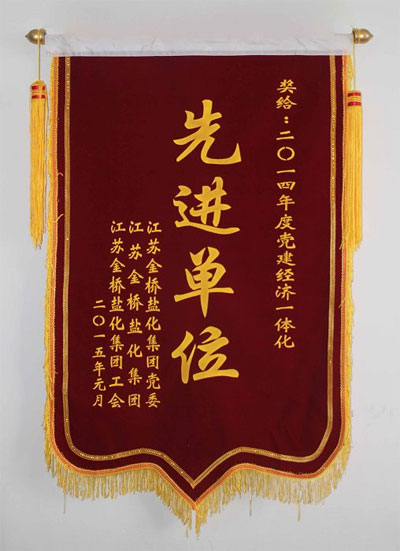 奖给：二〇一四年度党建经济一体化
先进单位
江苏金桥盐化集团党委
江苏金桥盐化集团
江苏金桥盐化集团工会
二〇一五年元月